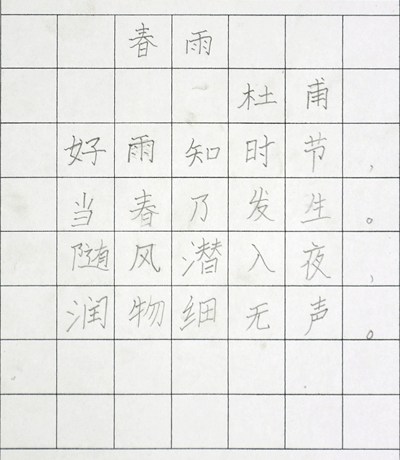 春雨
杜甫
好雨知时节，
当春乃发生。
随风潜入夜，
润物细无声。